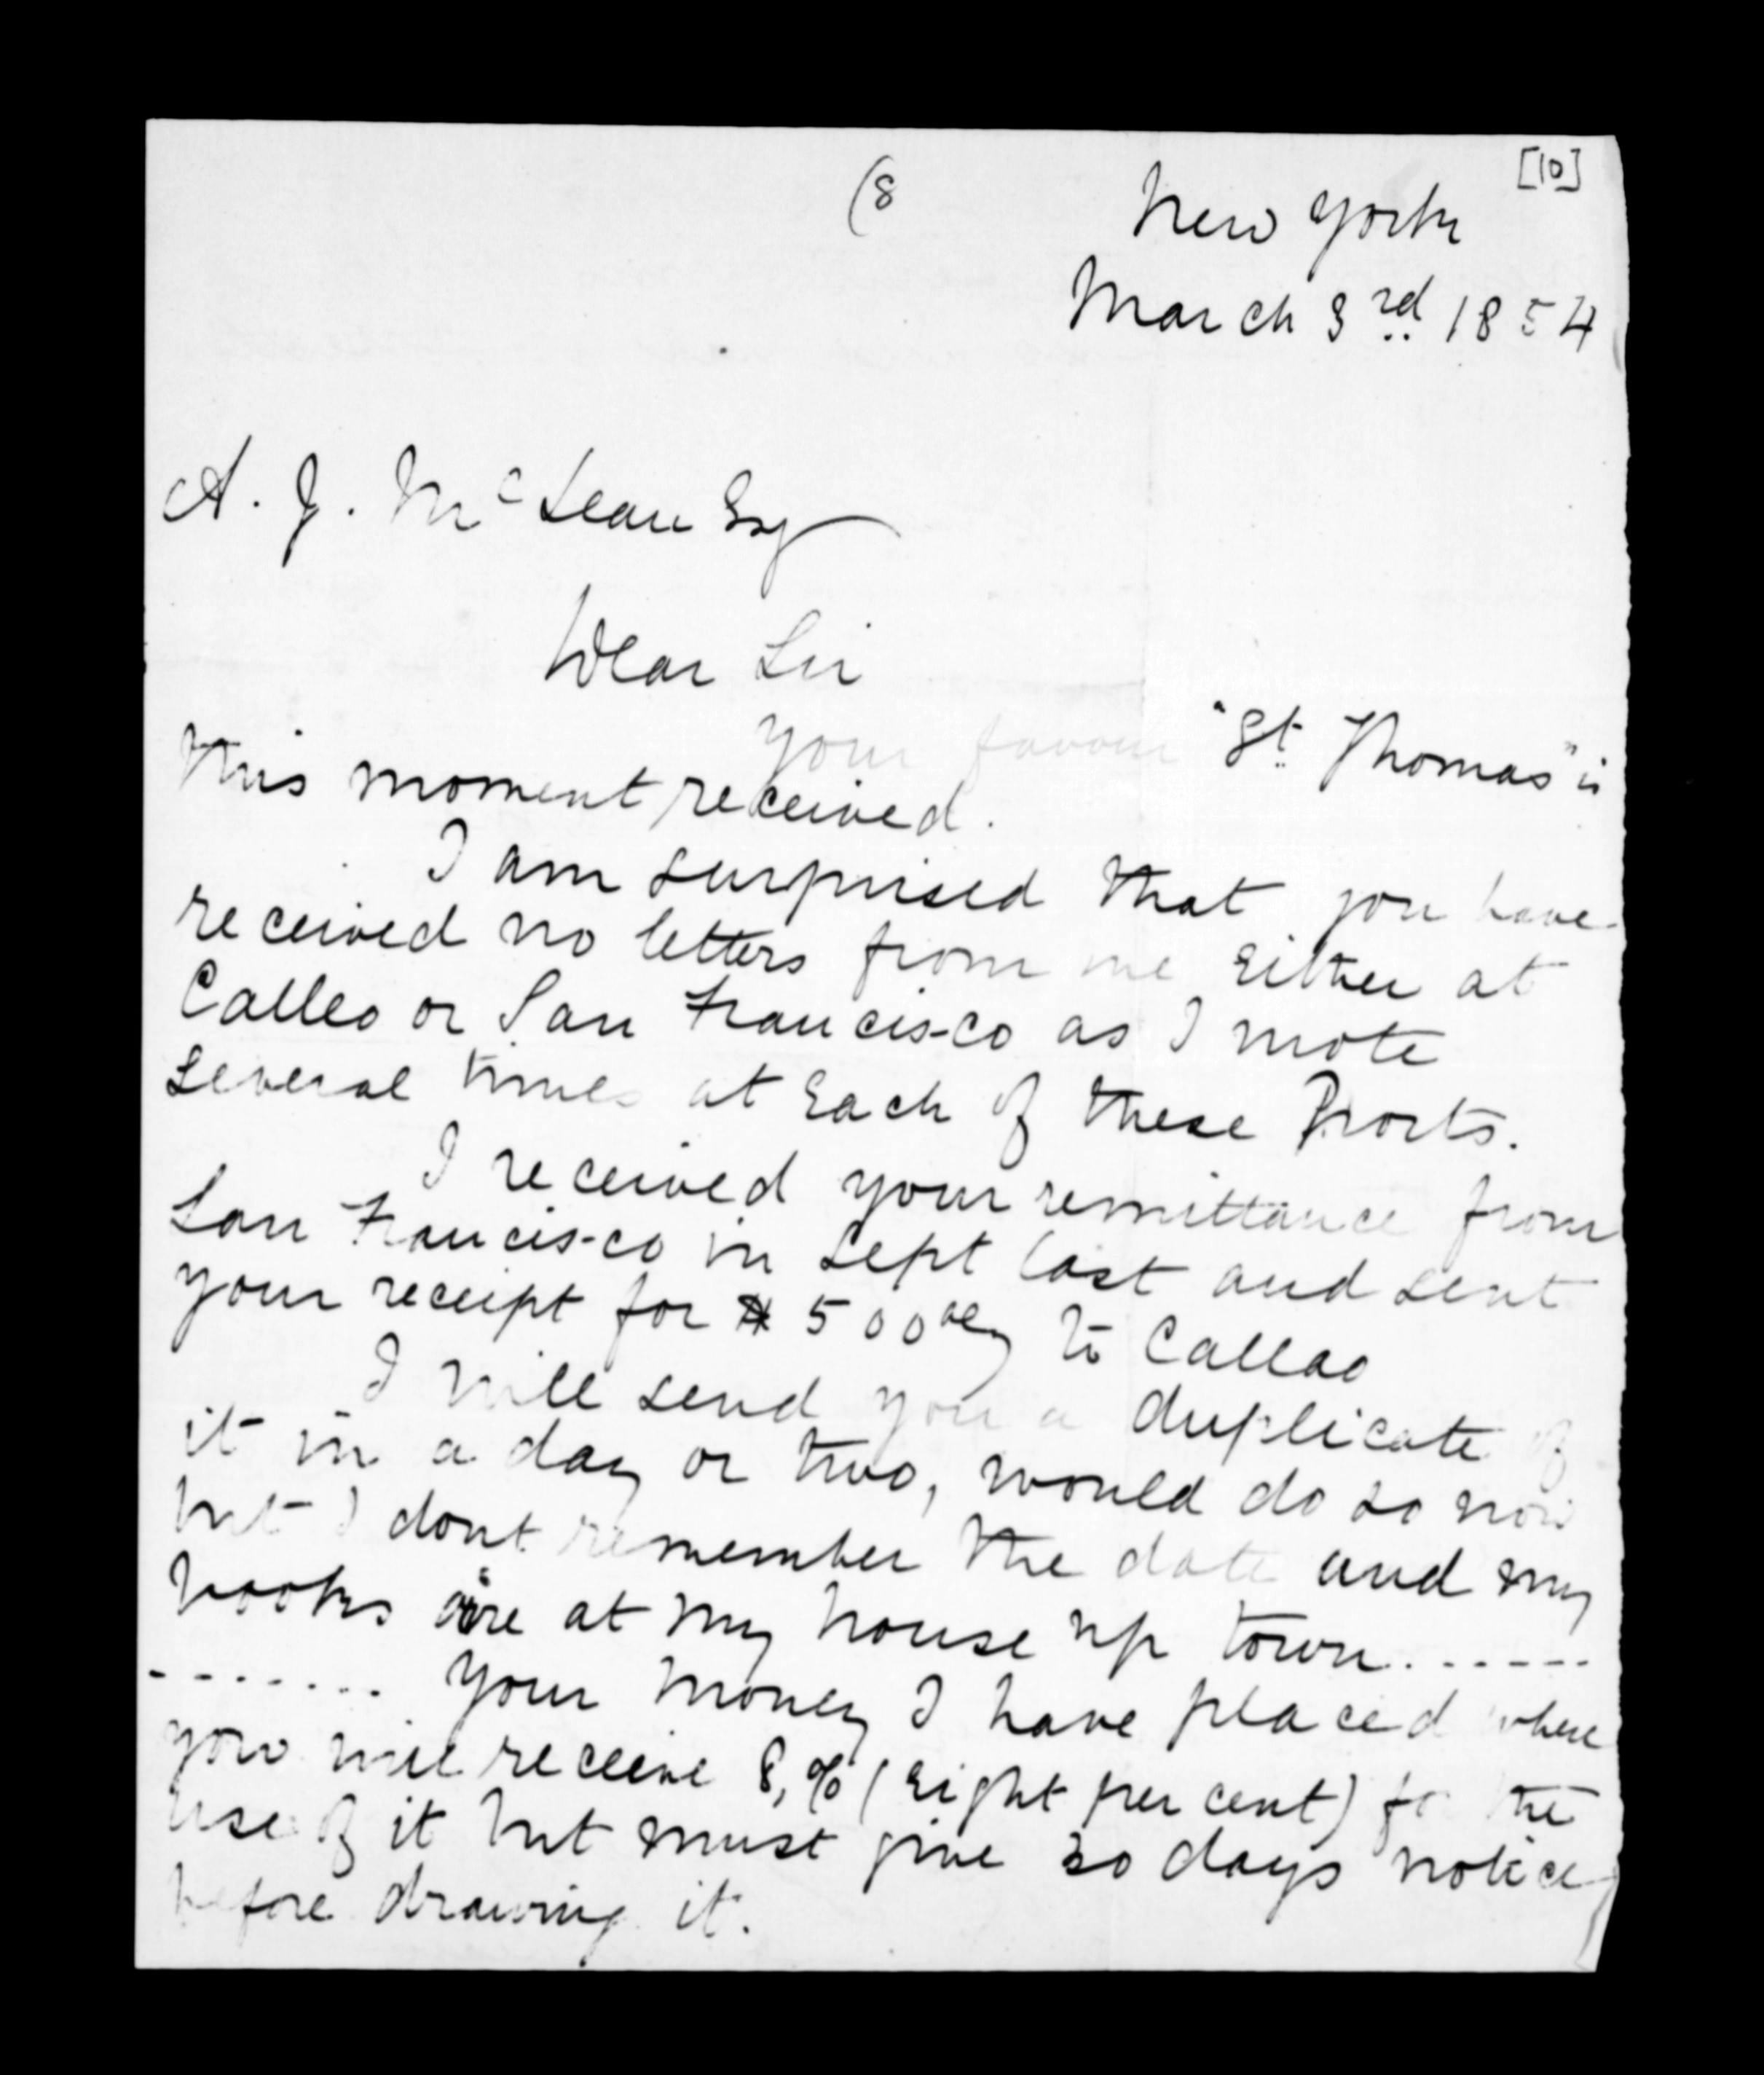 [10]
(8
New York
March 3rd 1854
A. J. McLean Esq
Dear Sir
Your favour "St. Thomas" is
this moment received.
I am surprised that you have
received no letters from me either at
Calleo or San Francis-co as I wrote
several times at each of these Ports.
I received your remittance from
San Francis-co in Sept last and sent
your receipt for $ 500 to Callao
I will send you a duplicate of
it in a day or two, would do so now
but I dont remember the date and my
books are at my house up town. - - - - -
- - - - - - - Your money I have placed where
you will receive 8,% (Eight per cent) for the
use of it but must give days notice
before drawing it.